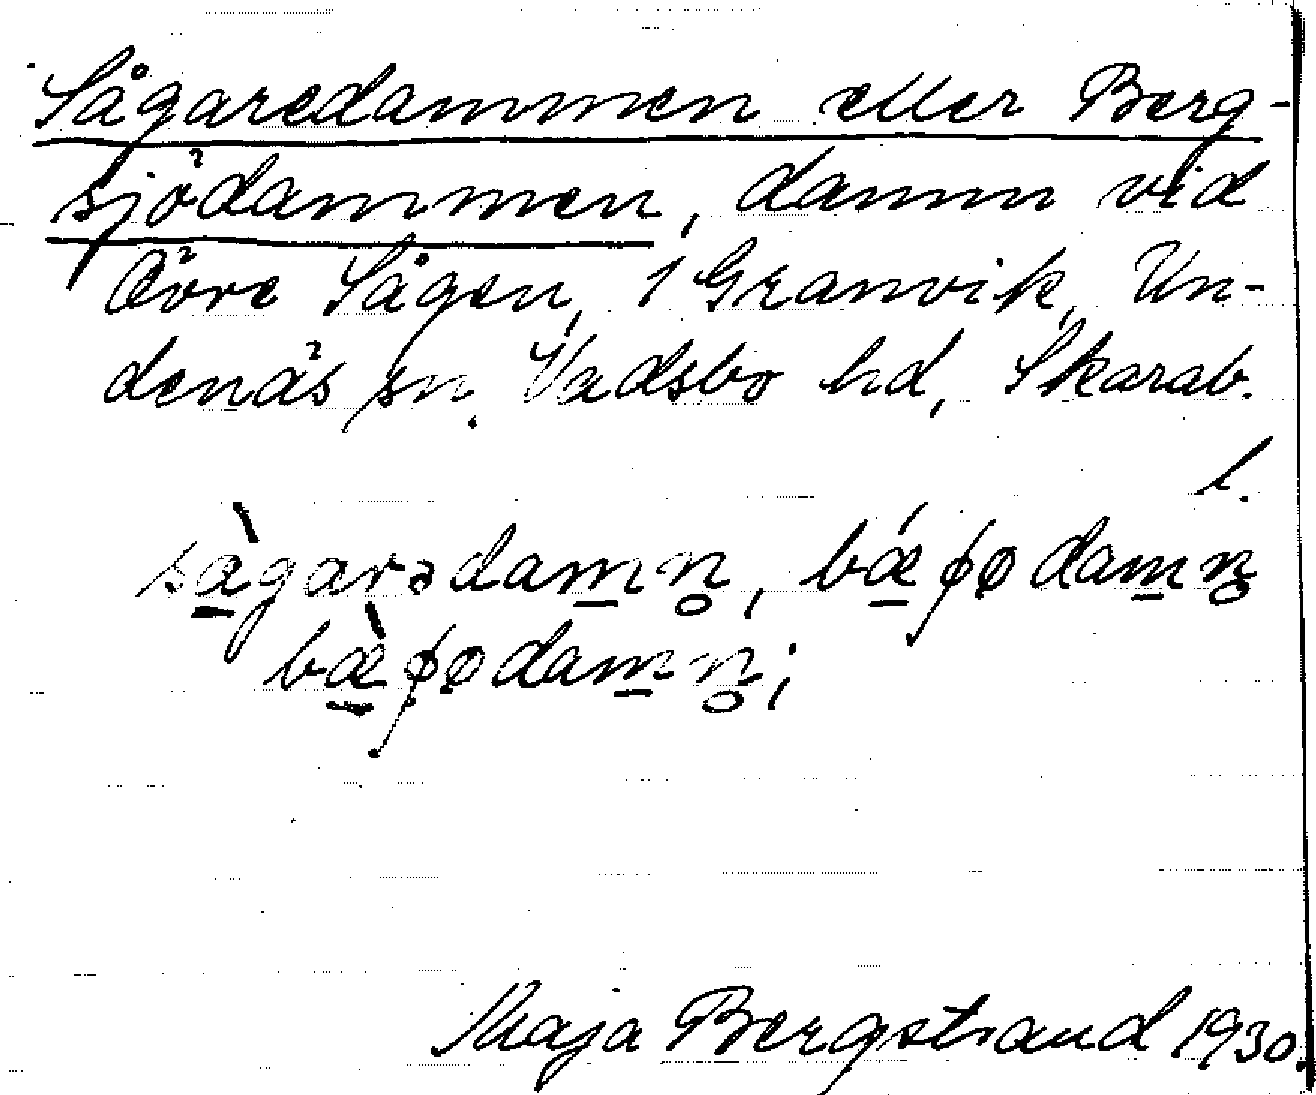 Sågaredammen eller Berg-
sjödammen, damm vid
Övre Sågen, 1 Granvik, Un-
denäs sn, Vadsbo hd, Skarab.
l.
sàgarədamn̥, bǽɸødamn̥
bæ̀ɸødamn̥;
Maja Bergstrand 1930.